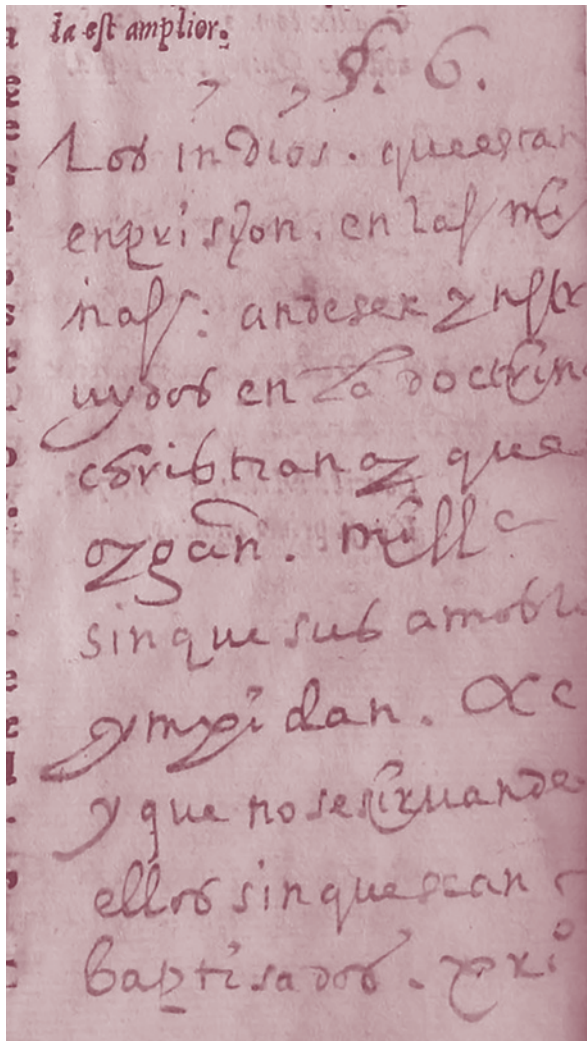 la est amplior.
§. 6.
Los indios. queestan
enprision. en las mi
nas: andeser ynstr
uydos en la doctrin
christiana y que
oygan. missa
sinque sus amos l
ympidan. &c
y que nosesirvande
ellos sinquesean
baptisados.